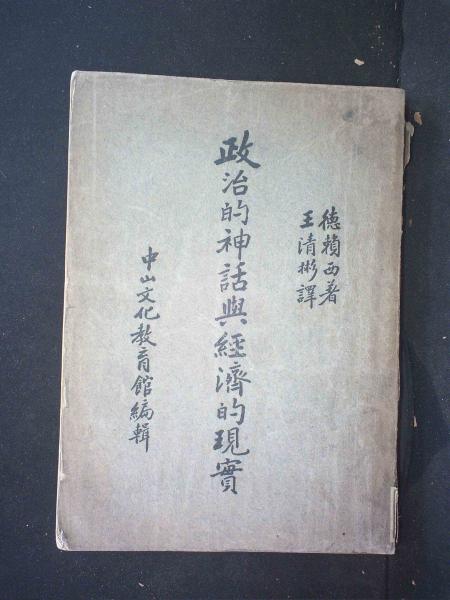 德賴西著
王清彬譯
政治的神話與經濟的現實
中山文化教育館編輯